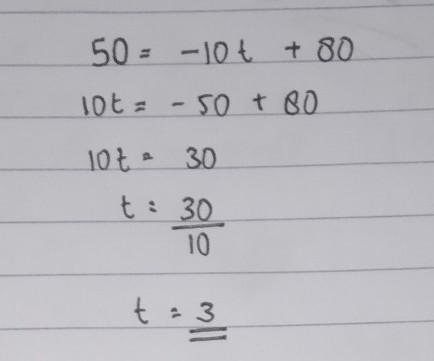 50 = -10t + 80
10t = - 50 + 80
10t = 30
t = 30/10
t = 3